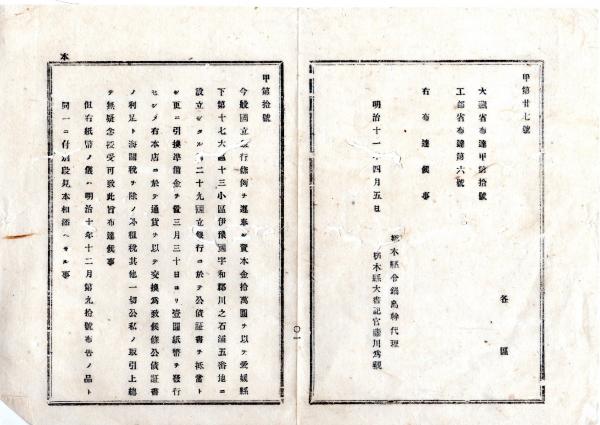 甲第廿七號
各區
大藏省布達甲第拾號
工部省布達第六號
右布達候事
明治十一年四月五日
栃木縣令鍋島幹代理
栃木縣大書記官藤川爲親
〇一
甲第拾號
今般國立銀行條例ヲ遵奉シ資本金拾萬圓ヲ以テ愛媛縣
下第十七大區十三小區伊豫國宇和郡川之石浦五番地ニ
設立シタル第二十九國立銀行ニ於テ公債証書ヲ抵當トシ
更ニ引換準備金ヲ置三月三十日ヨリ壹圓紙幣ヲ發行
セシメ右本店ニ於テ通貨ヲ以テ交換爲致候條公債証書
ノ利足ト海關稅ヲ除ノ外租稅其他一切公私ノ取引上總
テ無疑念授受可致此旨布達候事
但右紙幣ノ儀ハ明治十年十二月第九拾號布告ノ品ト
同一ニ付別段見本相添ヘサル事
本